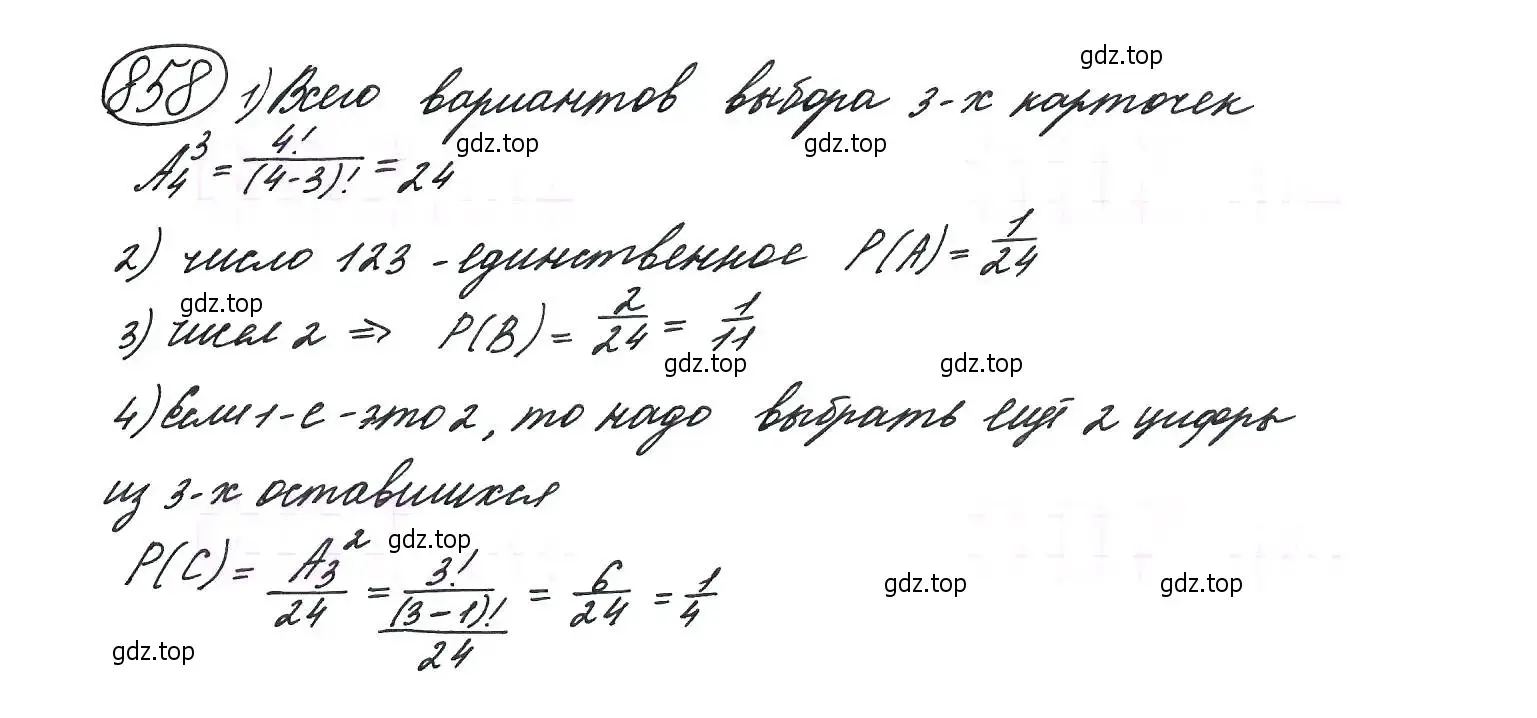 858 1) Всего вариантов выбора 3-х карточек
gdz.top
A₄³ = 4!/(4-3)! = 24
gdz.top gdz.top
2) число 123 - единственное P(A) = 1/24
gdz.top
3) чисел 2 ⇒ P(B) = 2/24 = 1/11
gdz.top gdz.top
4) Если 1-е - это 2, то надо выбрать ещё 2 цифры
из 3-х оставшихся
gdz.top
P(C) = A₃²/24 = 3!/(3-1)!/24 = 6/24 = 1/4
gdz.top gdz.top
gdz.top